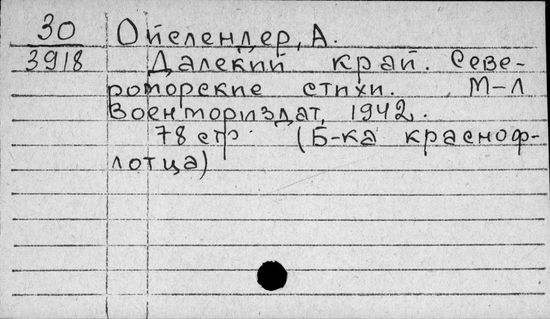 30 Ойслендер, А.
3918 Далекий край. Севе-
роморские стихи. М-Л
Военмориздат, 1942.
78 стр. (Б-ка красноф-
лотца)